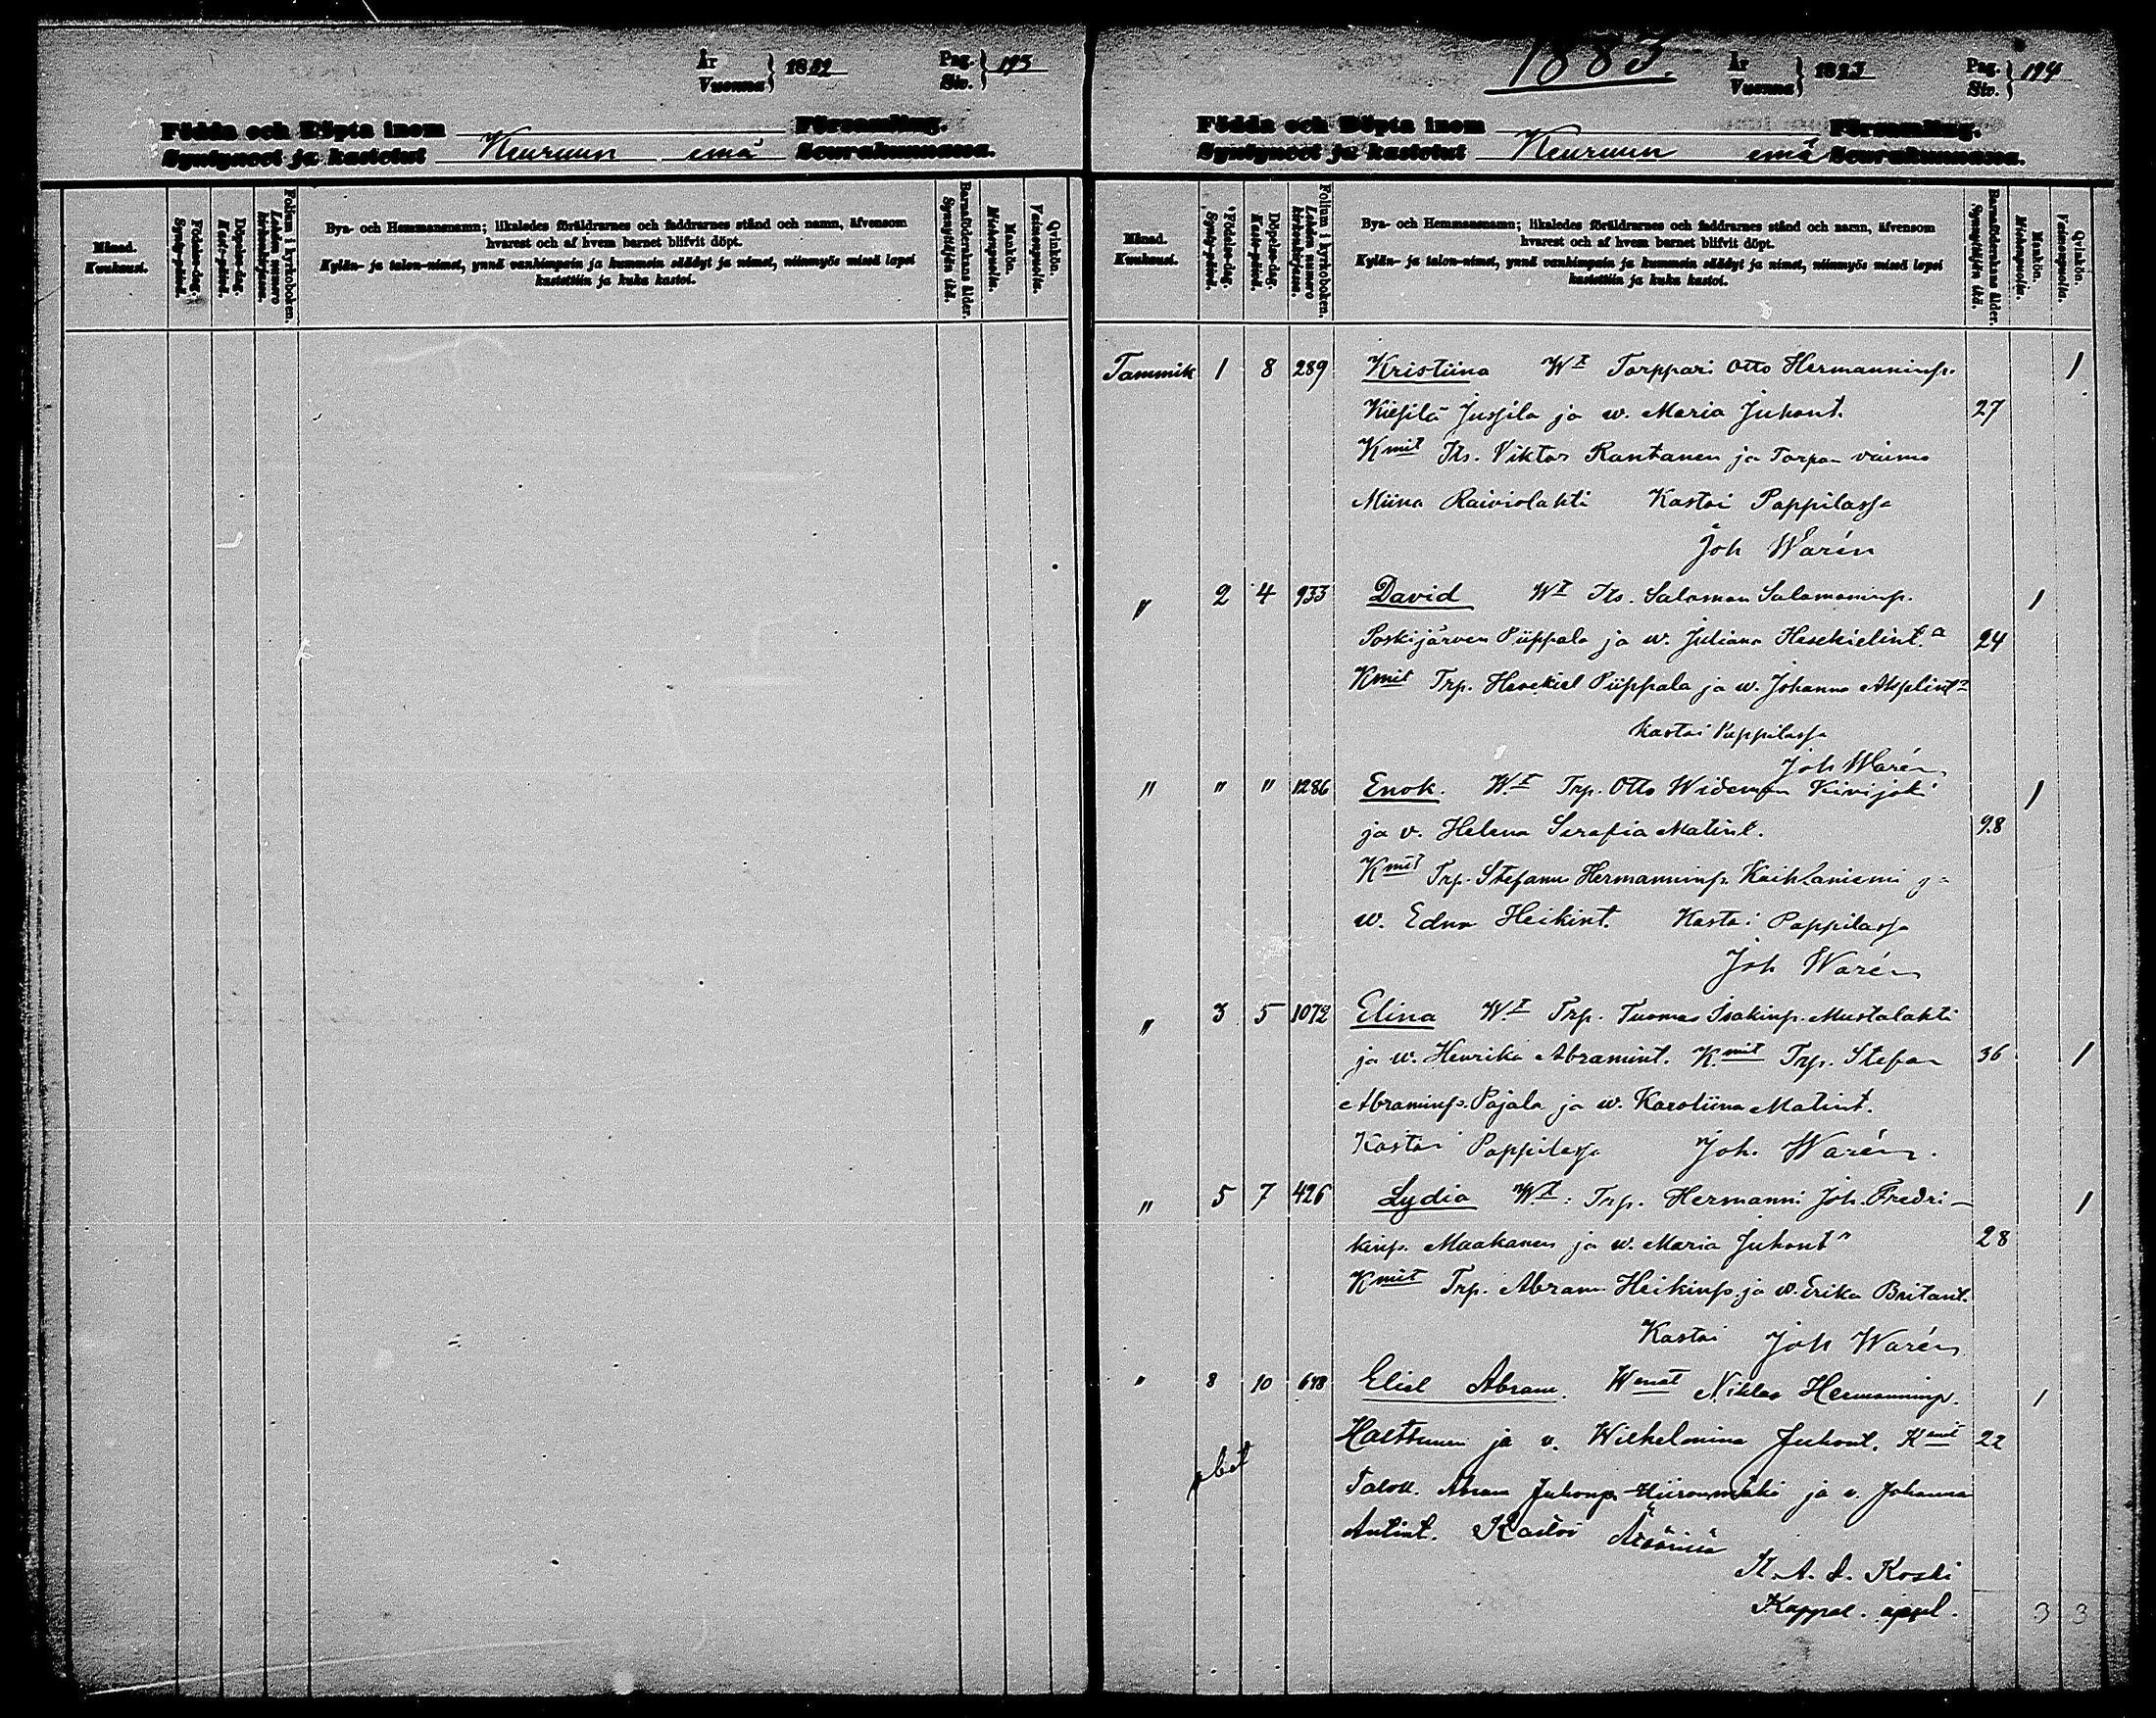 År
Vuonna } 1882
Pag.
Siv. } 193
Födda och Döpta inom Församling.
Syntyneet ja kastetut Keuruun emä Seurakunnassa.
Månad.
Kuukausi.
Födelse-dag.
Synty-päivä.
Döpelse-dag.
Kaste-päivä.
Folium i kyrkoboken.
Lehden numero
kirkonkirjassa.
Bya- och Hemmansnamn; likaledes föräldrarnes och faddrarnes stånd och namn, äfvensom
hvarest och af hvem barnet blifvit döpt.
Kylän- ja talon-nimet, ynnä vanhimpain ja kummein säädyt ja nimet, niinmyös missä lapsi
kastettiin ja kuka kastoi.
Barnaföderskans ålder.
Synnyttäjän ikä.
Mankön.
Miehenpuolia.
Qvinkön.
Vaimonpuolia.
1883.
År
Vuonna } 1883
Pag.
Siv. } 194
Födda och Döpta inom Församling.
Syntyneet ja kastetut Keuruun emä Seurakunnassa.
Månad.
Kuukausi.
Födelse-dag.
Synty-päivä.
Döpelse-dag.
Kaste-päivä.
Folium i kyrkoboken.
Lehden numero
kirkonkirjassa.
Bya- och Hemmansnamn; likaledes föräldrarnes och faddrarnes stånd och namn, äfvensom
hvarest och af hvem barnet blifvit döpt.
Kylän- ja talon-nimet, ynnä vanhimpain ja kummein säädyt ja nimet, niinmyös missä lapsi
kastettiin ja kuka kastoi.
Barnaföderskans ålder.
Synnyttäjän ikä.
Mankön.
Miehenpuolia.
Qvinkön.
Vaimonpuolia.
Tammik 1 8 289 Kristiina Wt Torppari Otto Hermanninp. 1
Jussila ja w. Maria Juhont. 27
Kmit Its. Viktor Rantanen ja Torpan vaimo
Miina Raiviolahti Kastoi Pappilassa
Joh Warén
" 2 4 933 David Wt Its. Salomon Salomoninp. 1
Poskijärven Piippala ja w. Juliana Hesekielint.a 24
Kmit Trp. Hesekiel Piippala ja w. Johanna
Kastoi Pappilassa
Joh Warén
" " " 1286 Enok. Wt Trp. Otto Wideman Kivijoki 1
ja v. Helena Serafia Matint. 28
Kmit Trp. Stefanus Hermanninp. Kaihlaniemi ja
w. Edna Heikint. Kastoi Pappilassa
Joh Warén
" 3 5 1072 Elina Wt Trp. Tuomas Isakinp. Mustalahti
ja w. Henrika Abramint. Kmit Trp. Stefan 36 1
Abraminp. Pajala ja w. Karoliina Matint.
Kastoi Pappilassa Joh. Warén.
" 5 7 426 Lydia Wt: Trp. Hermanni Joh. Fredri- 1
kinp. Maakanen ja w. Maria Juhont 28
Kmit Trp. Abram Heikinp. ja w. Erika Britant.
Kastoi Joh Warén
" 8 10 648 Eliel Abram. Wmat Niklas Hermanninp. 1
ja v. Wilhelmina Juhont. Kmit 22
Taloll. Abram Juhonp. ja v. Johanna
Antint. Kastoi
K. A. A. Koski
Kappal. apul. 3 3